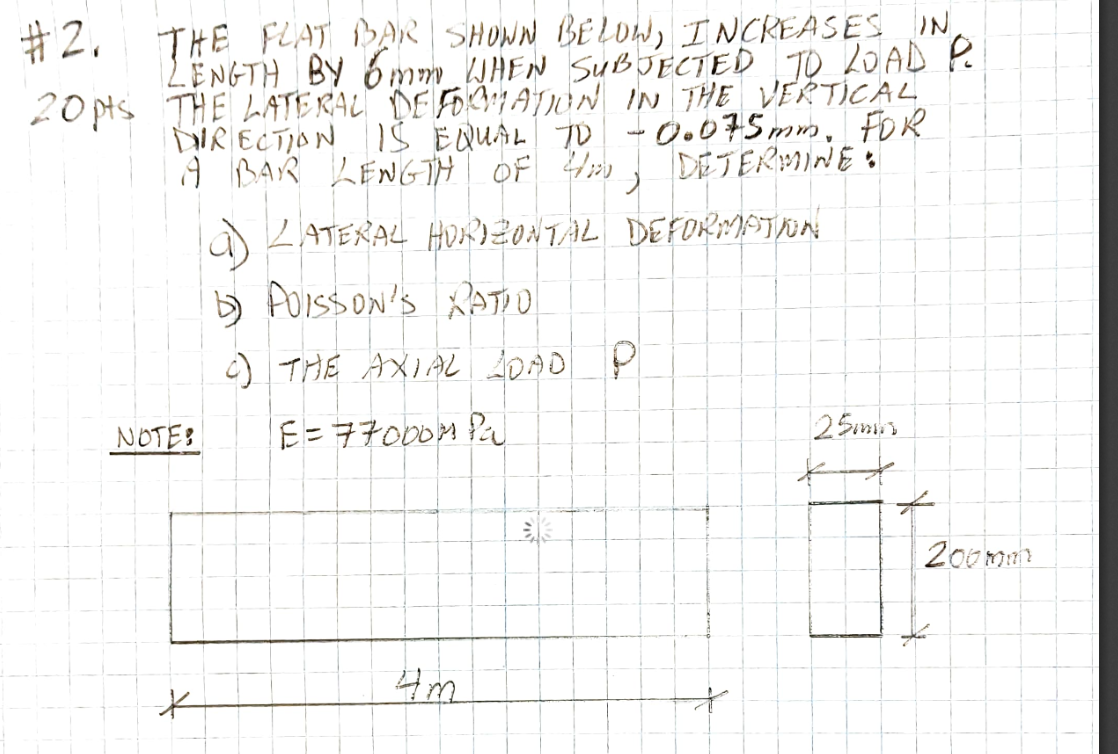 #2. THE FLAT BAR SHOWN BELOW, INCREASES IN
LENGTH BY 6mm WHEN SUBJECTED TO LOAD P.
20pts THE LATERAL DEFORMATION IN THE VERTICAL
DIRECTION IS EQUAL TO -0.075mm. FOR
A BAR LENGTH OF 4m, DETERMINE:
a) LATERAL HORIZONTAL DEFORMATION
b) POISSON'S RATIO
c) THE AXIAL LOAD P
NOTE: E=77000MPa
25mm
200mm
4m